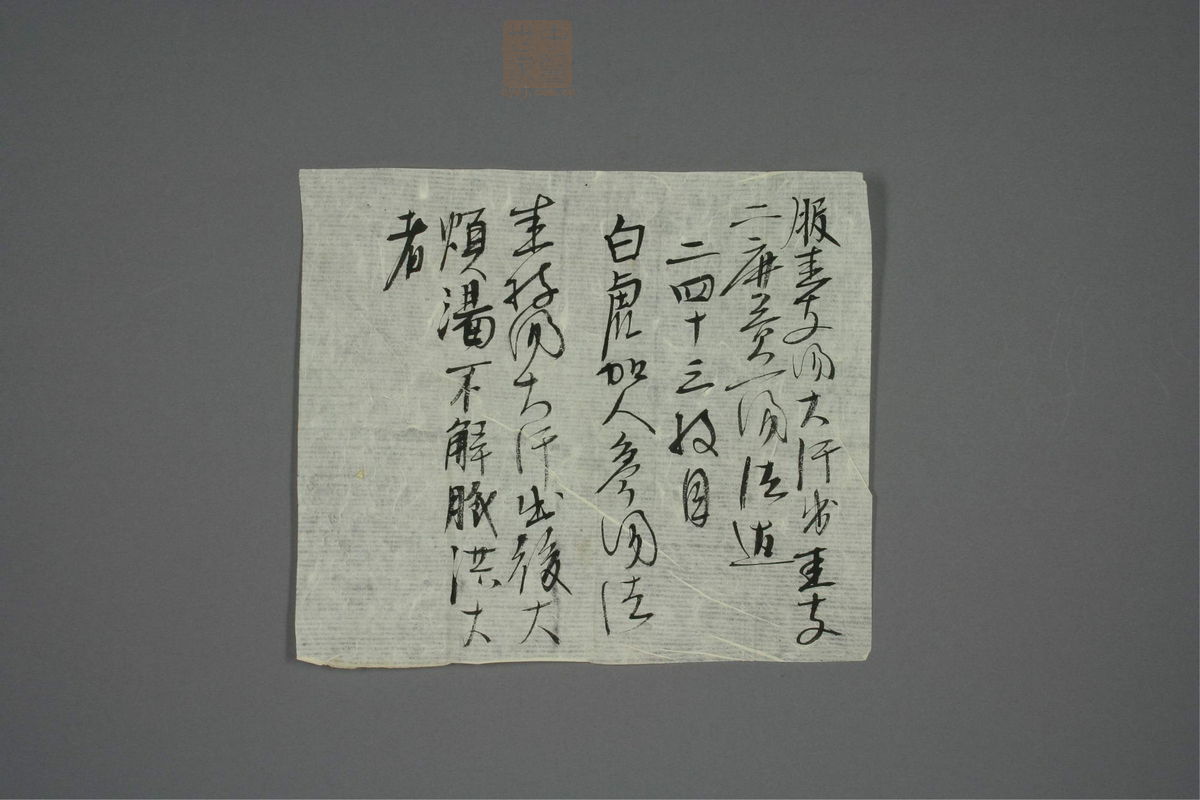 服圭支湯大汗出圭支
二麻黄一湯法道
二四十三枚目
白虎加人参湯法
圭枝湯大汗出後大
煩湯不解脈洪大
者